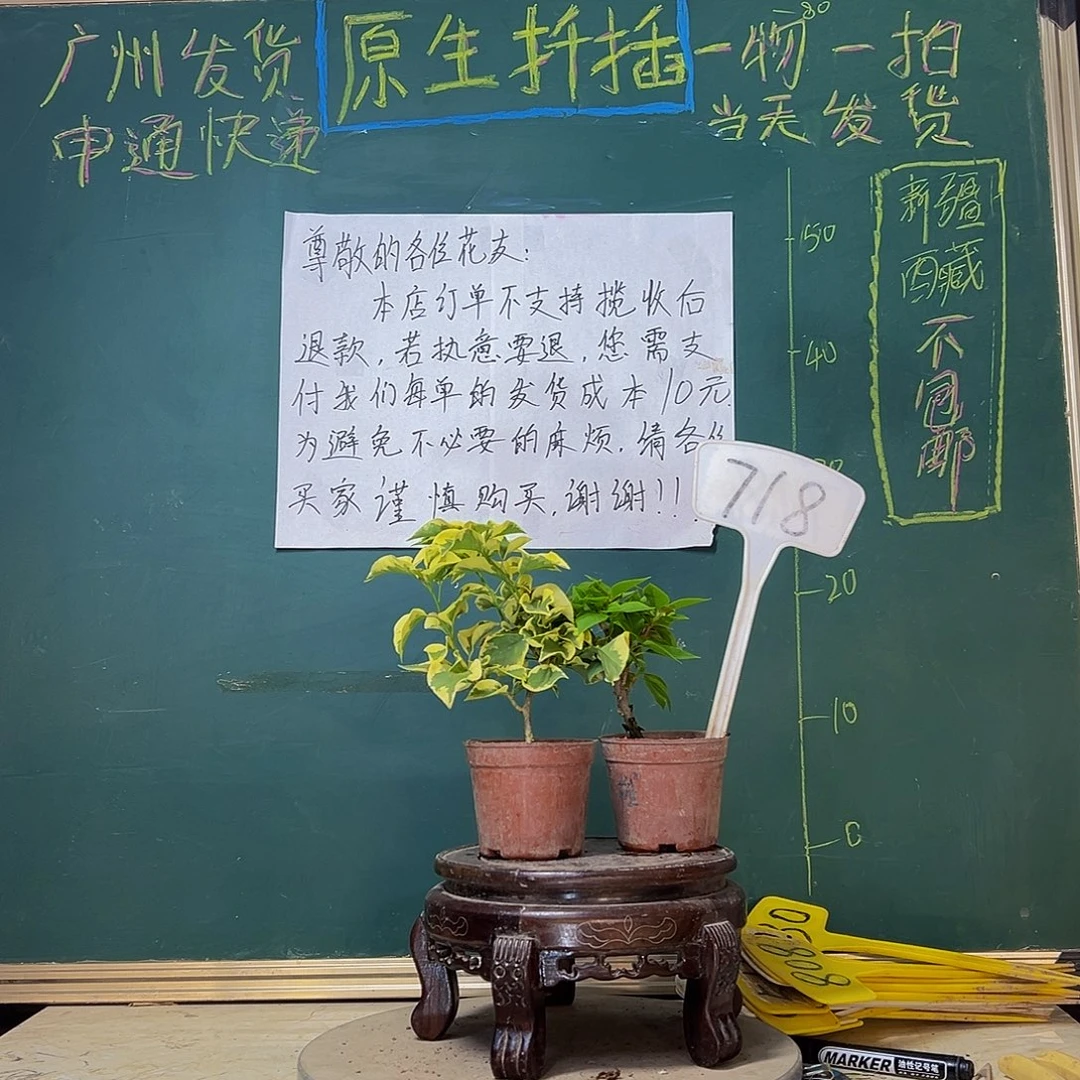 广州发货
申通快递
原生扦插
一物一拍
80
当天发货
新疆
西藏
不包邮
50
40
20
10
0
尊敬的各位花友:
本店订单不支持揽收后
退款,若执意要退,您需支
付我们每单的发货成本10元.
为避免不必要的麻烦.请各位
买家谨慎购买,谢谢!!!
718
808
MARKER 油性记号笔